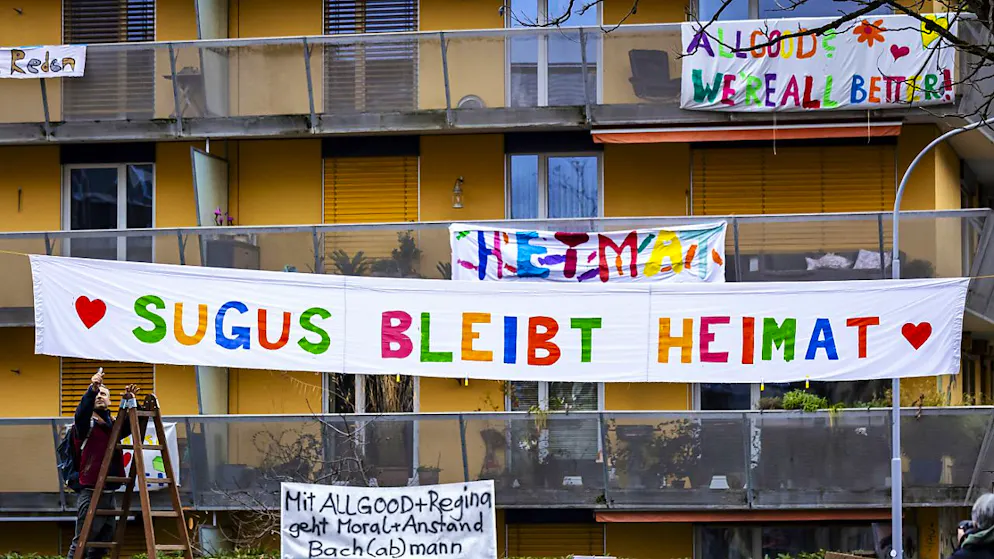 Reden
ALLGOOD?
WE'RE ALL BETTER!
HEIMAT
SUGUS BLEIBT HEIMAT
Mit ALLGOOD+Regina
geht Moral+Anstand
Bach(ab)mann